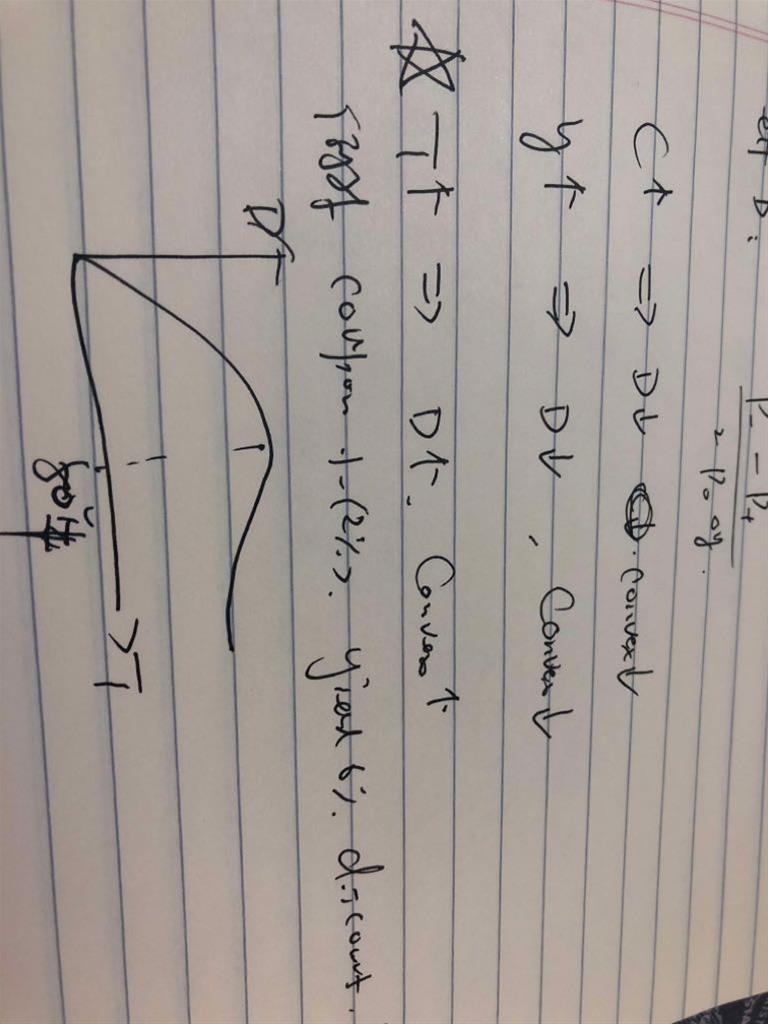 eff D: P₋ - P₊
2 P₀ Δy.
C↑ ⇒ D↓. Convex↓
y↑ ⇒ D↓, Convex↓
☆ T↑ ⇒ D↑. Convex↑
coupon 1-(2%). yield 6%. discount.
D
50年
T